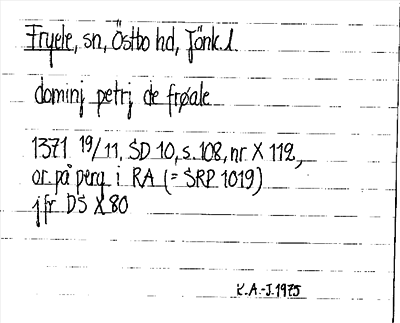 Fryele, sn, Östbo hd, Jönk.l.
dominj petrj de frøale
1371 19/11, SD 10, s.108, nr X 112,
or på perg i RA (= SRP 1019)
jfr DS X 80
K.A.-J. 1975